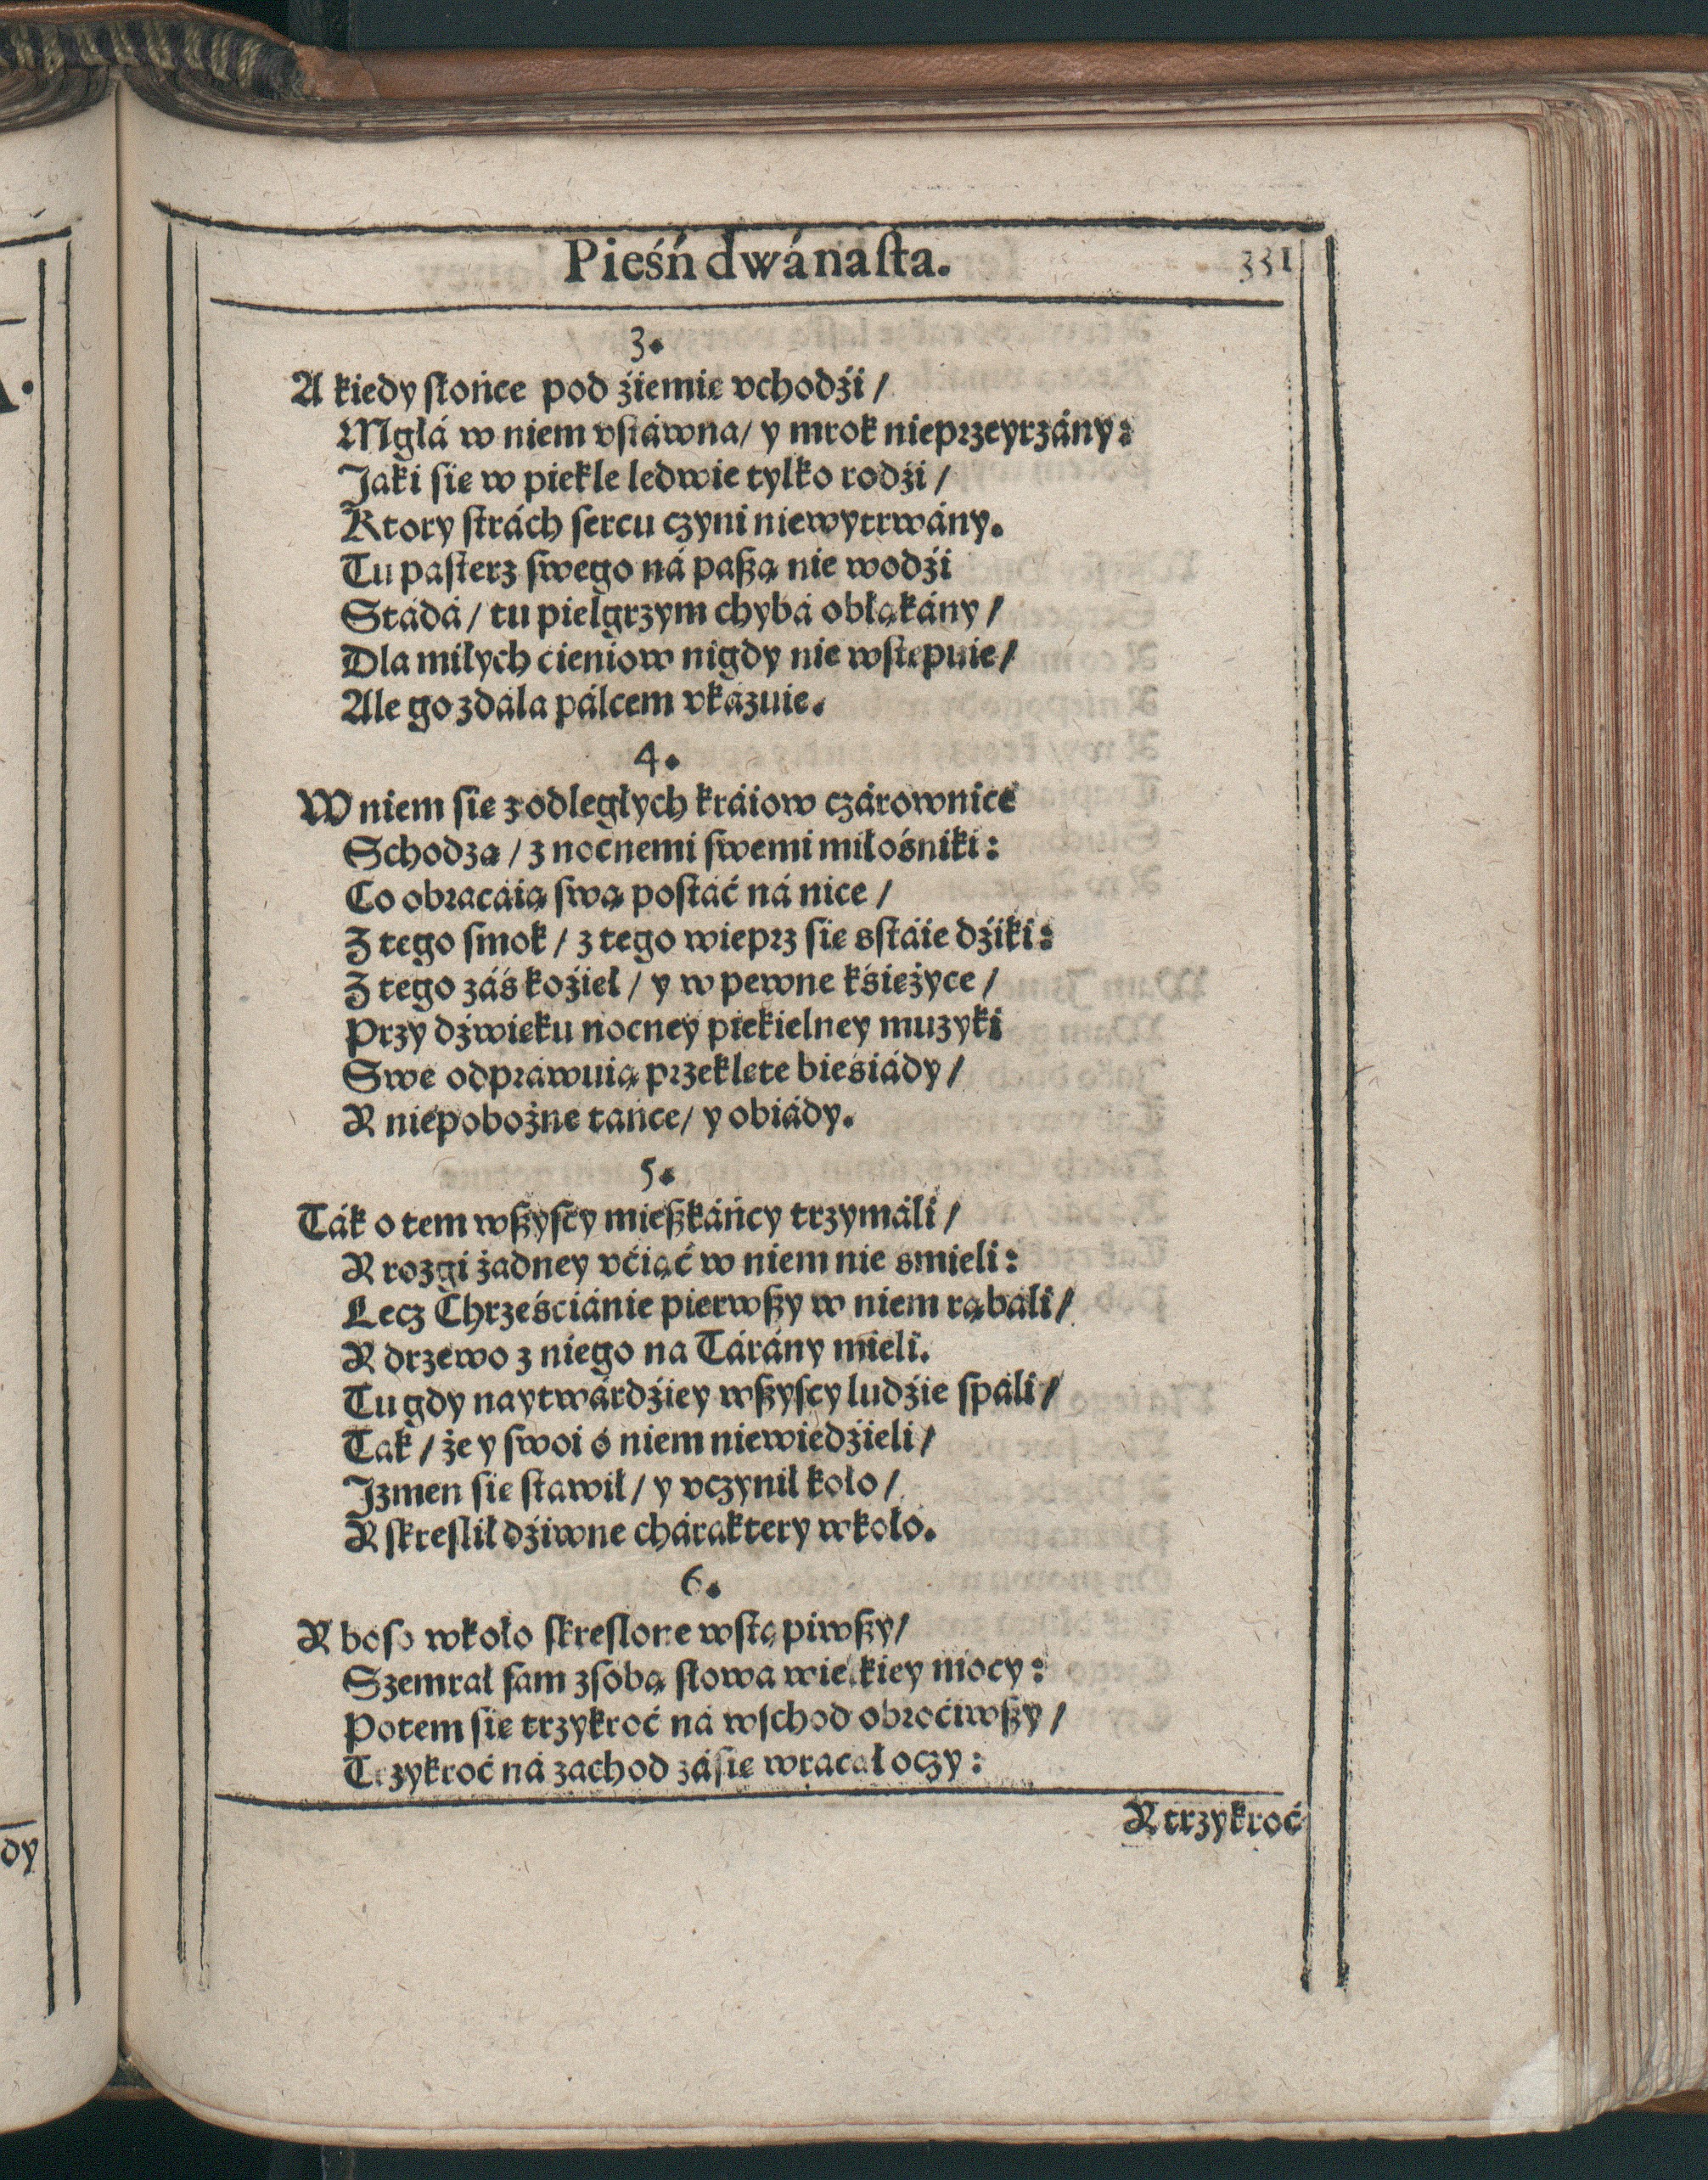 Pieśń dwánaſta. 331
3.
A kiedy ſłońce pod źiemię vchodźi /
Mgłá w niem vſtáwna / y mrok nieprzeyrzány:
Jaki ſię w piekle ledwie tylko rodźi /
Ktory ſtrách ſercu czyni niewytrwány.
Tu paſterz ſwego ná paßą nie wodźi
Stádá / tu pielgrzym chybá obłąkány /
Dla miłych cieniow nigdy nie wſtępuie /
Ale go zdála pálcem vkázuie.
4.
W niem ſię z odległych kráiow czárownice
Schodzą / z nocnemi ſwemi miłośniki:
Co obracáią ſwą poſtáć ná nice /
Z tego ſmok / z tego wieprz ſię sſtáie dźiki:
Z tego záś koźieł / y w pewne kśiężyce /
Przy dźwięku nocney piekielney muzyki
Swe odpráwuią przeklęte bieśiády /
Y niepobożne táńce / y obiády.
5.
Ták o tem wßyſcy mießkáńcy trzymáli /
Y rozgi żadney vćiąć w niem nie śmieli:
Lecz Chrześćiánie pierwßy w niem rąbáli /
Y drzewo z niego na Tárány mieli.
Tu gdy naytwárdźiey wßyſcy ludźie ſpáli /
Tak / że y ſwoi o niem niewiedźieli /
Jzmen ſię ſtawił / y vczynił koło /
Y ſkreſlił dźiwne cháraktery wkoło.
6.
Y boſo wkoło ſkreſlone wſtąpiwßy /
Szemrał ſam zſobą ſłowa wielkiey mocy:
Potem ſię trzykroć ná wſchod obroćiwßy /
Trzykroć ná zachod záſię wracał oczy:
Y trzykroć
dy